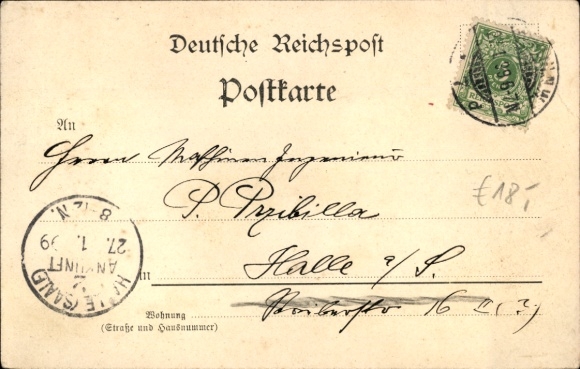 Deutsche Reichspost
Postkarte
An
Herrn Maschinen Ingenieur
P. Przibilla
in Halle a/S.
Wohnung 16 II, (?)
(Straße und Hausnummer)
HALLE (SAALE)
ANKUNFT
2
27. 1. 99
8-12 N.
€18,-